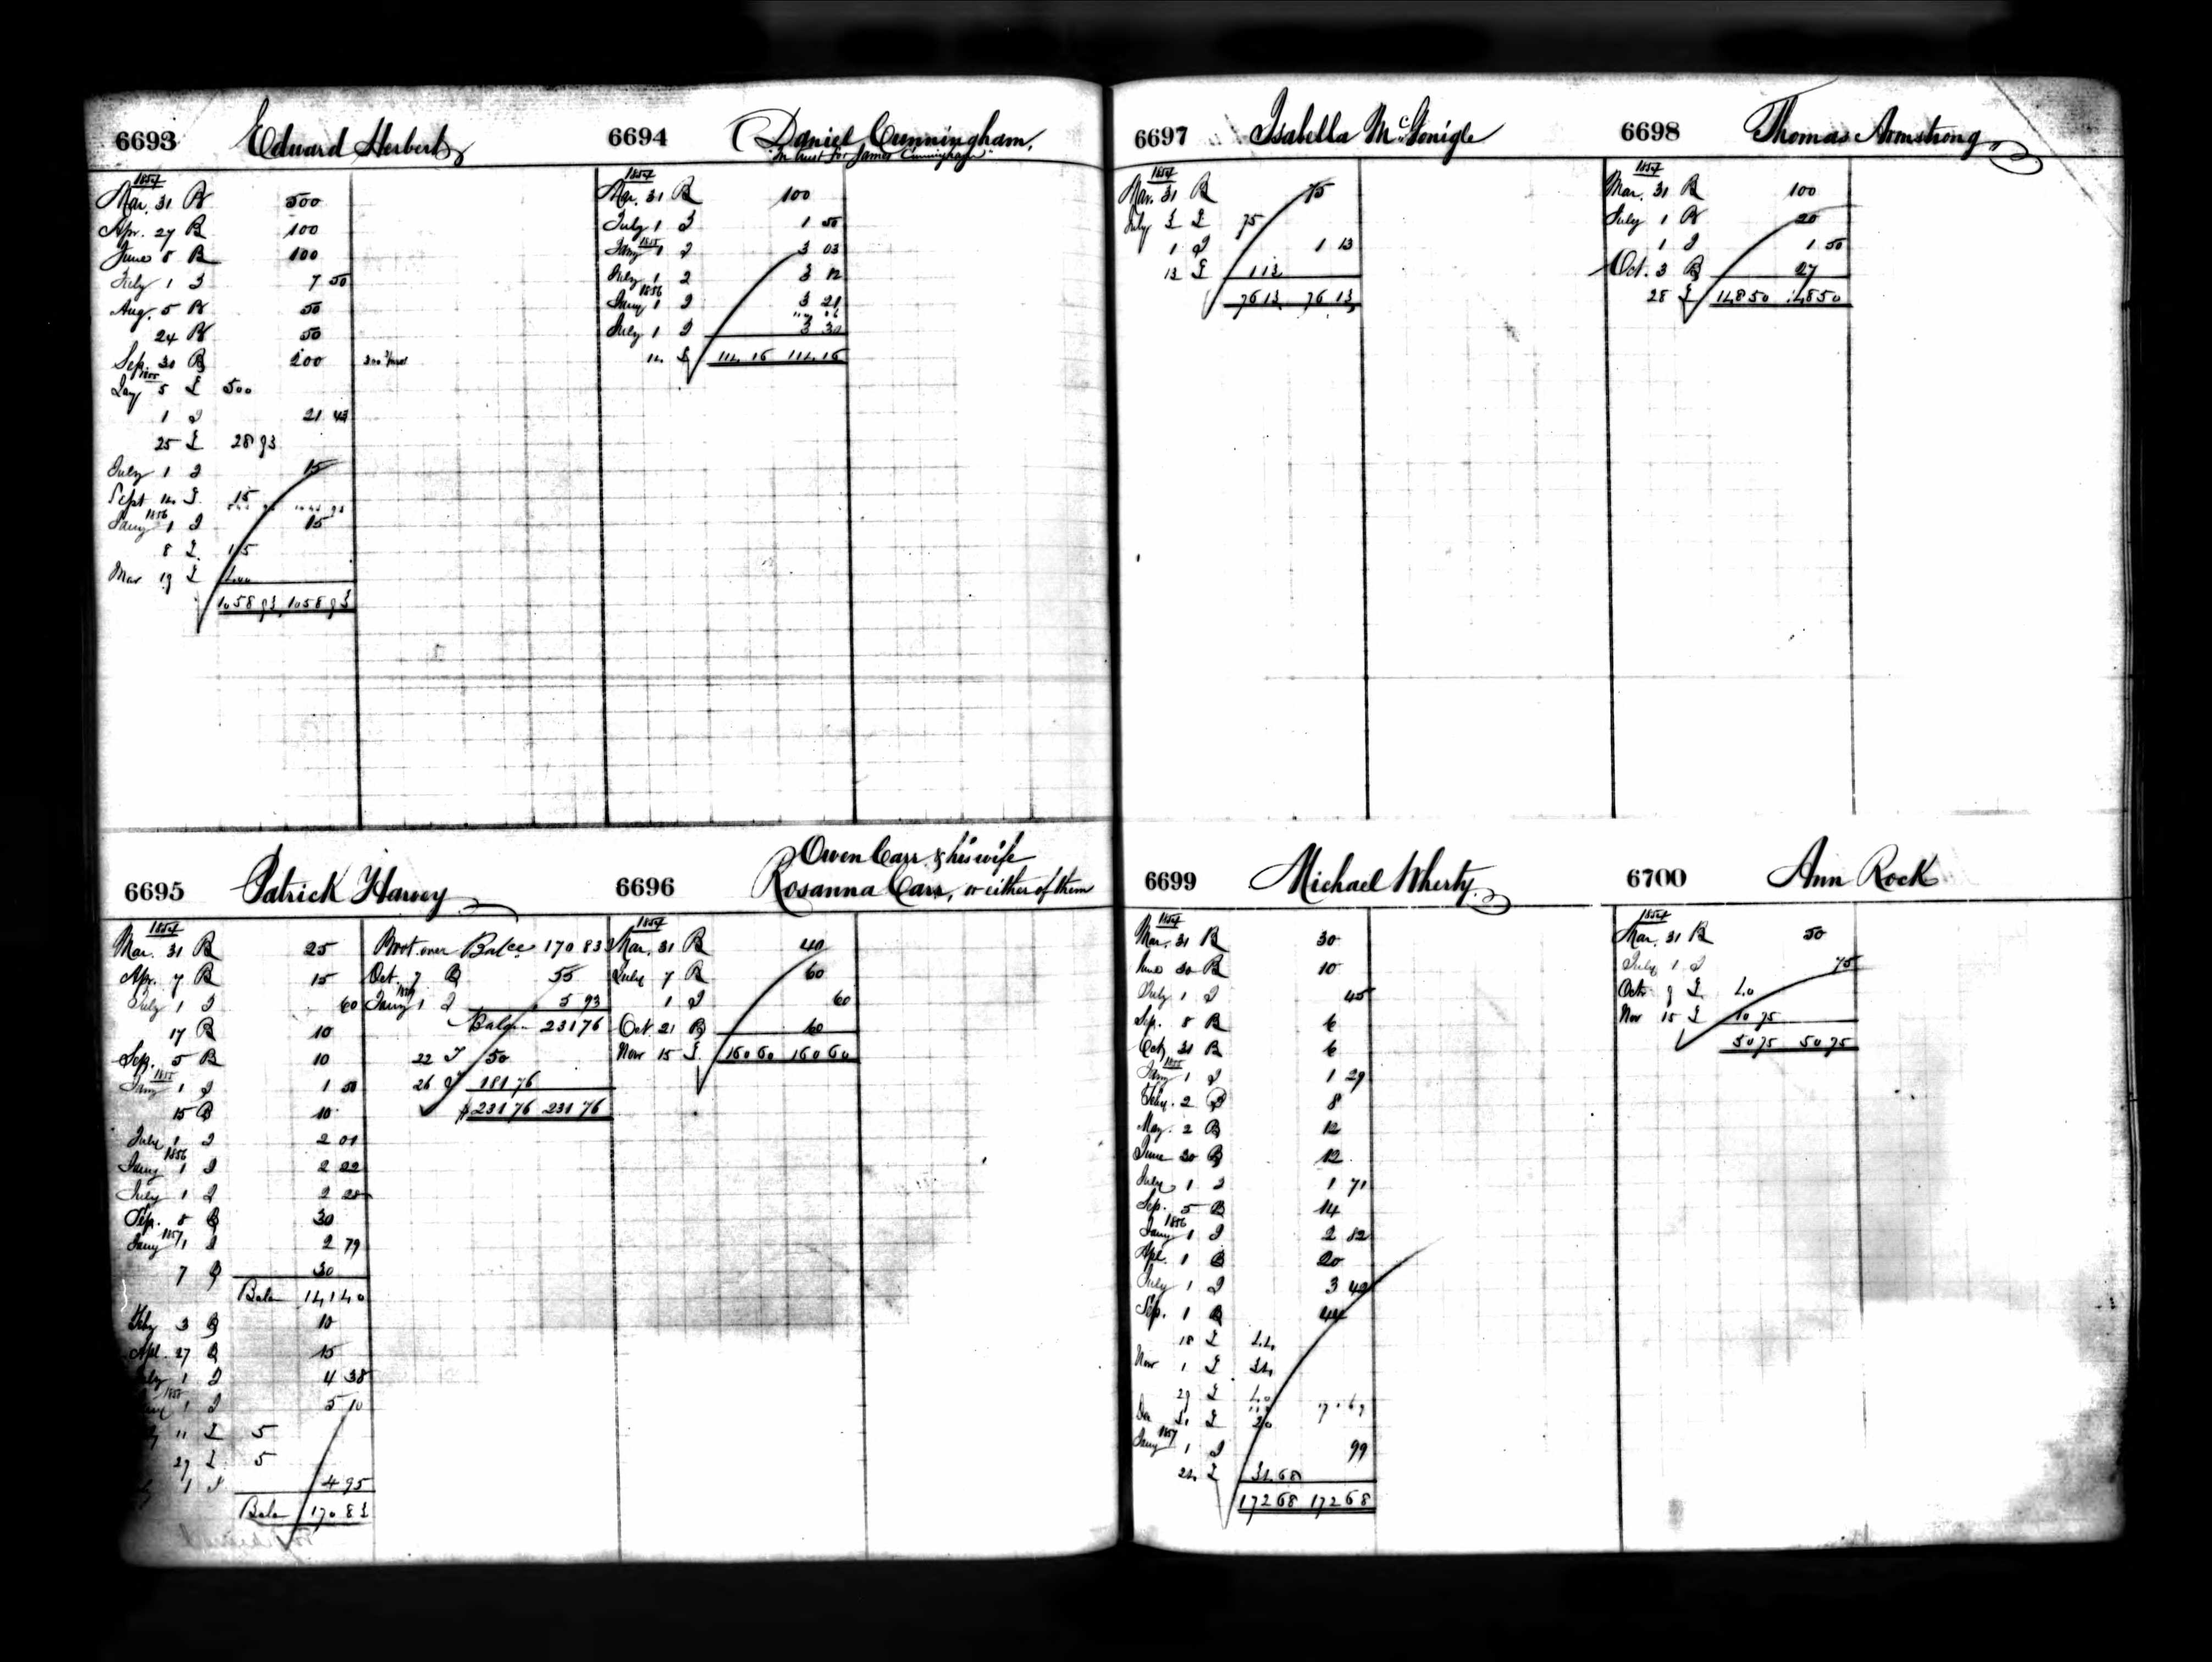 6693 Edward Herbert
1854
Mar. 31 R 500
Apr. 27 R 100
June 5 R 100
July 1 I 7 50
Aug. 5 R 50
24 R 50
Sep. 30 R 200
1855
Jany 5 £ 500
1 I 21 43
25 £ 28 93
July 1 I 15
Sept 14 £ 15
1856
Jany 1 I 15
8 £ 15
Mar 19 £ 400
1058 93 1058 93
6694 Daniel Cunningham,
In trust for James Cunningham
1854
Mar. 31 R 100
July 1 I 1 50
Jany 1855 1 I 3 03
July 1 I 3 12
1856
Jany 1 I 3 21
July 1 I 3 30
14 £ 114 16 114 16
6695 Patrick Harvey
1854
Mar. 31 R 25
Apr. 7 R 15
July 1 I 60
17 R 10
Sep. 5 R 10
1855
Jany 1 I 1 50
15 R 10
July 1 I 2 01
1856
Jany 1 I 2 22
July 1 I 2 28
Sep. 5 R 30
1857
Jany 1 I 2 79
7 R 30
Balce 141 40
Feby 3 R 10
Apl. 27 R 15
July 1 I 4 38
1 I 5 10
11 £ 5
29 £ 5
1 I 4 95
Balce 170 83
Brot. over Balce. 170 83
Oct. 7 R 55
Jany 1859 1 I 5 93
Balce 231 76
22 £ 50
26 £ 181 76
$231 76 231 76
6696 Owen Carr & his wife
Rosanna Carr, or either of them
1854
Mar. 31 R 40
July 7 R 60
1 I 60
Oct. 21 R 60
Nov 15 £ 160 60 160 60
6697 Isabella McGonigle
1854
Mar. 31 R 75
July 3 £ 75
1 I 1 13
13 £ 1 13
76 13 76 13
6698 Thomas Armstrong
1854
Mar. 31 R 100
July 1 R 20
1 I 1 50
Oct. 3 R 27
28 £ 148 50 148 50
6699 Michael Wherty
1854
Mar. 31 R 30
June 30 R 10
July 1 I 45
Sep. 5 R 6
Oct. 31 R 6
1855
Jany 1 I 1 29
Feby. 2 R 8
May. 2 R 12
June 30 R 12
July 1 I 1 71
Sep. 5 R 14
1856
Jany 1 I 2 82
Apl. 1 R 20
July 1 I 3 42
Sep. 1 R 44
18 £ 44
Nov 1 £ 34
29 £ 40
Dec £ 20
1857
Jany 1 I 99
24 £ 34 68
172 68 172 68
6700 Ann Rock
1854
Mar. 31 R 50
July 1 I 75
Oct 9 £ 40
Nov 15 £ 10 75
50 75 50 75